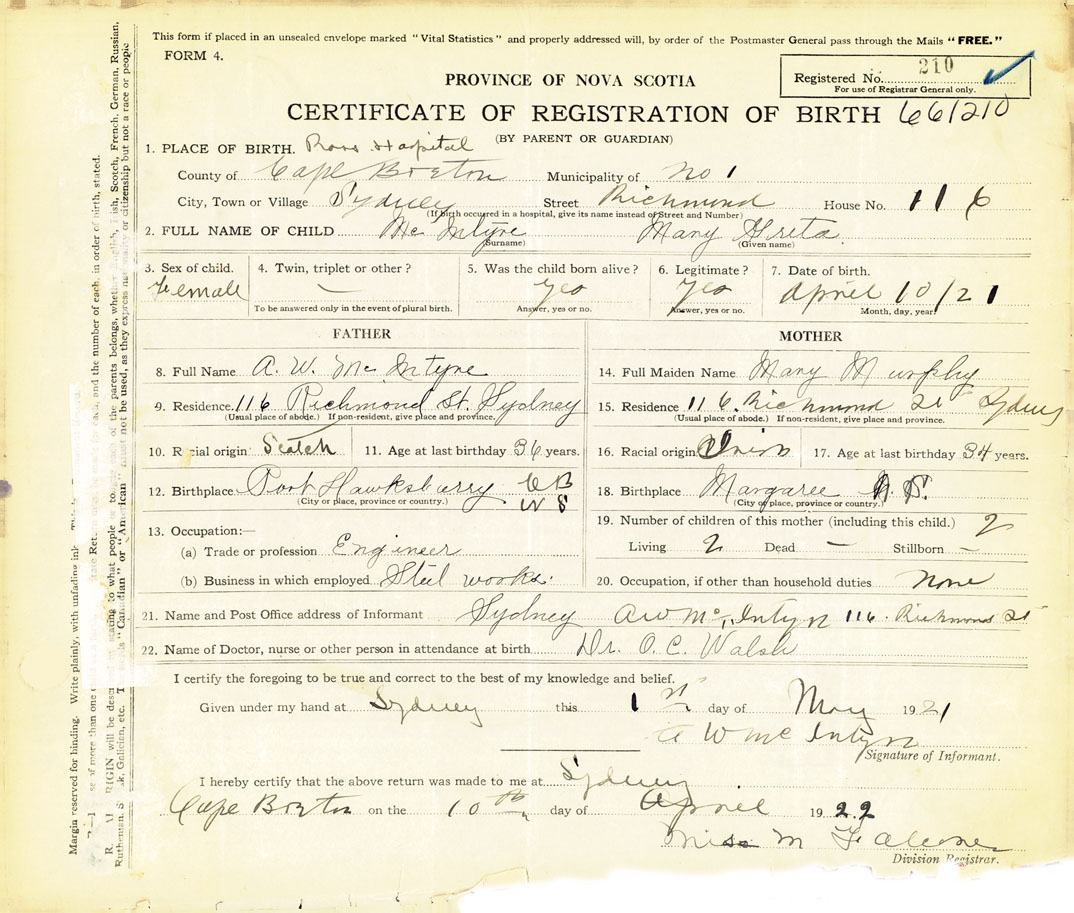 This form if placed in an unsealed envelope marked "Vital Statistics" and properly addressed will, by order of the Postmaster General pass through the Mails "FREE."
FORM 4.
Registered No. 210
For use of Registrar General only.
PROVINCE OF NOVA SCOTIA
CERTIFICATE OF REGISTRATION OF BIRTH 661210
(BY PARENT OR GUARDIAN)
1. PLACE OF BIRTH. Ross Hospital
County of Cape Breton Municipality of No 1
City, Town or Village Sydney Street Richmond House No. 116
(If birth occurred in a hospital, give its name instead of Street and Number)
2. FULL NAME OF CHILD Mc Intyre Mary Greta
(Surname) (Given name)
3. Sex of child. 4. Twin, triplet or other? 5. Was the child born alive? 6. Legitimate? 7. Date of birth.
Female — yes yes April 10/21
To be answered only in the event of plural birth. Answer, yes or no. Answer, yes or no. Month, day, year.
FATHER MOTHER
8. Full Name A. W. Mc Intyre 14. Full Maiden Name Mary Murphy
9. Residence 116 Richmond St. Sydney 15. Residence 116. Richmond St Sydney
(Usual place of abode.) If non-resident, give place and province. (Usual place of abode.) If non-resident, give place and province.
10. Racial origin Scotch 11. Age at last birthday 36 years. 16. Racial origin Irish 17. Age at last birthday 34 years.
12. Birthplace Port Hawksburry CB 18. Birthplace Margaree N. S.
(City or place, province or country.) NS (City or place, province or country.)
19. Number of children of this mother (including this child.) 2
13. Occupation:—
(a) Trade or profession Engineer Living 2 Dead — Stillborn —
(b) Business in which employed Steel works. 20. Occupation, if other than household duties None
21. Name and Post Office address of Informant Sydney A W Mc Intyre 116 Richmond St
22. Name of Doctor, nurse or other person in attendance at birth Dr. O. C. Walsh
I certify the foregoing to be true and correct to the best of my knowledge and belief.
Given under my hand at Sydney this 1 st day of May 1921
A W Mc Intyre
Signature of Informant.
I hereby certify that the above return was made to me at Sydney
Cape Breton on the 10 th day of April 1922
Miss M Falconer
Division Registrar.
Margin reserved for binding. Write plainly, with unfading ink.
of more than one
and the number of each, in order of birth, stated.